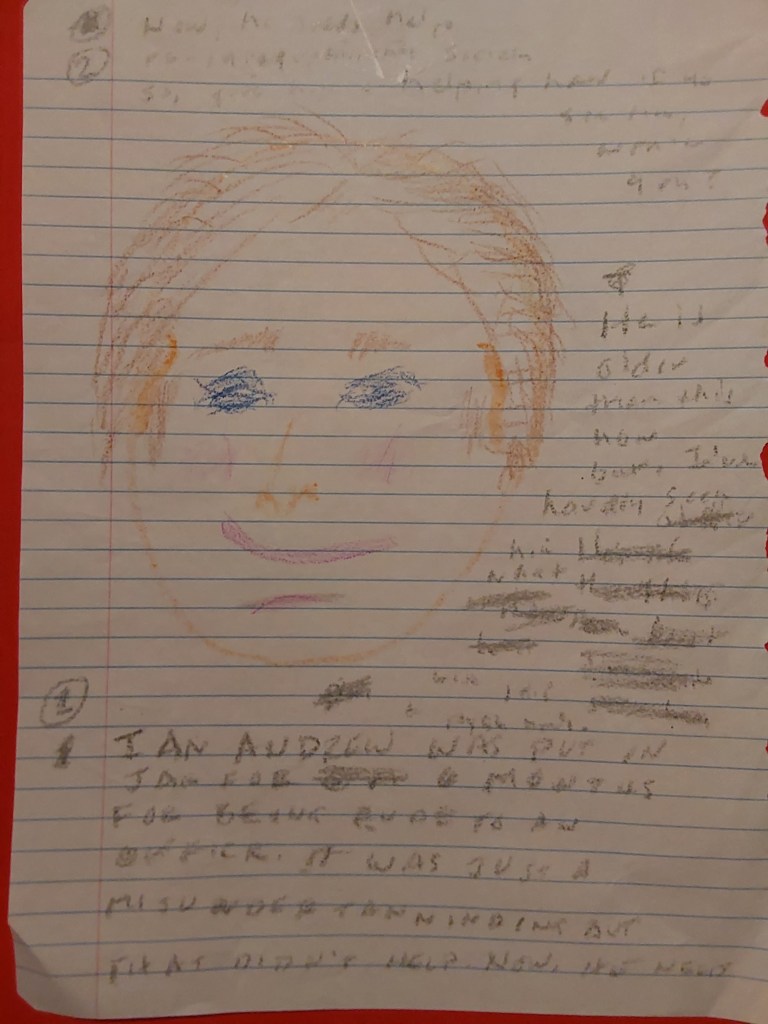 2
Now, he needs help
so, give him a helping hand if you
see him,
won't
you?
He is
older
than this
now
but, I've
hardly seen
him
what
with this
1
1 IAN ANDREW WAS PUT IN
JAIL FOR 6 MONTHS
FOR BEING RUDE TO AN
OFFICER. IT WAS JUST A
MISUNDERSTANNINDING BUT
THAT DIDN'T HELP. NOW, HE NEEDS